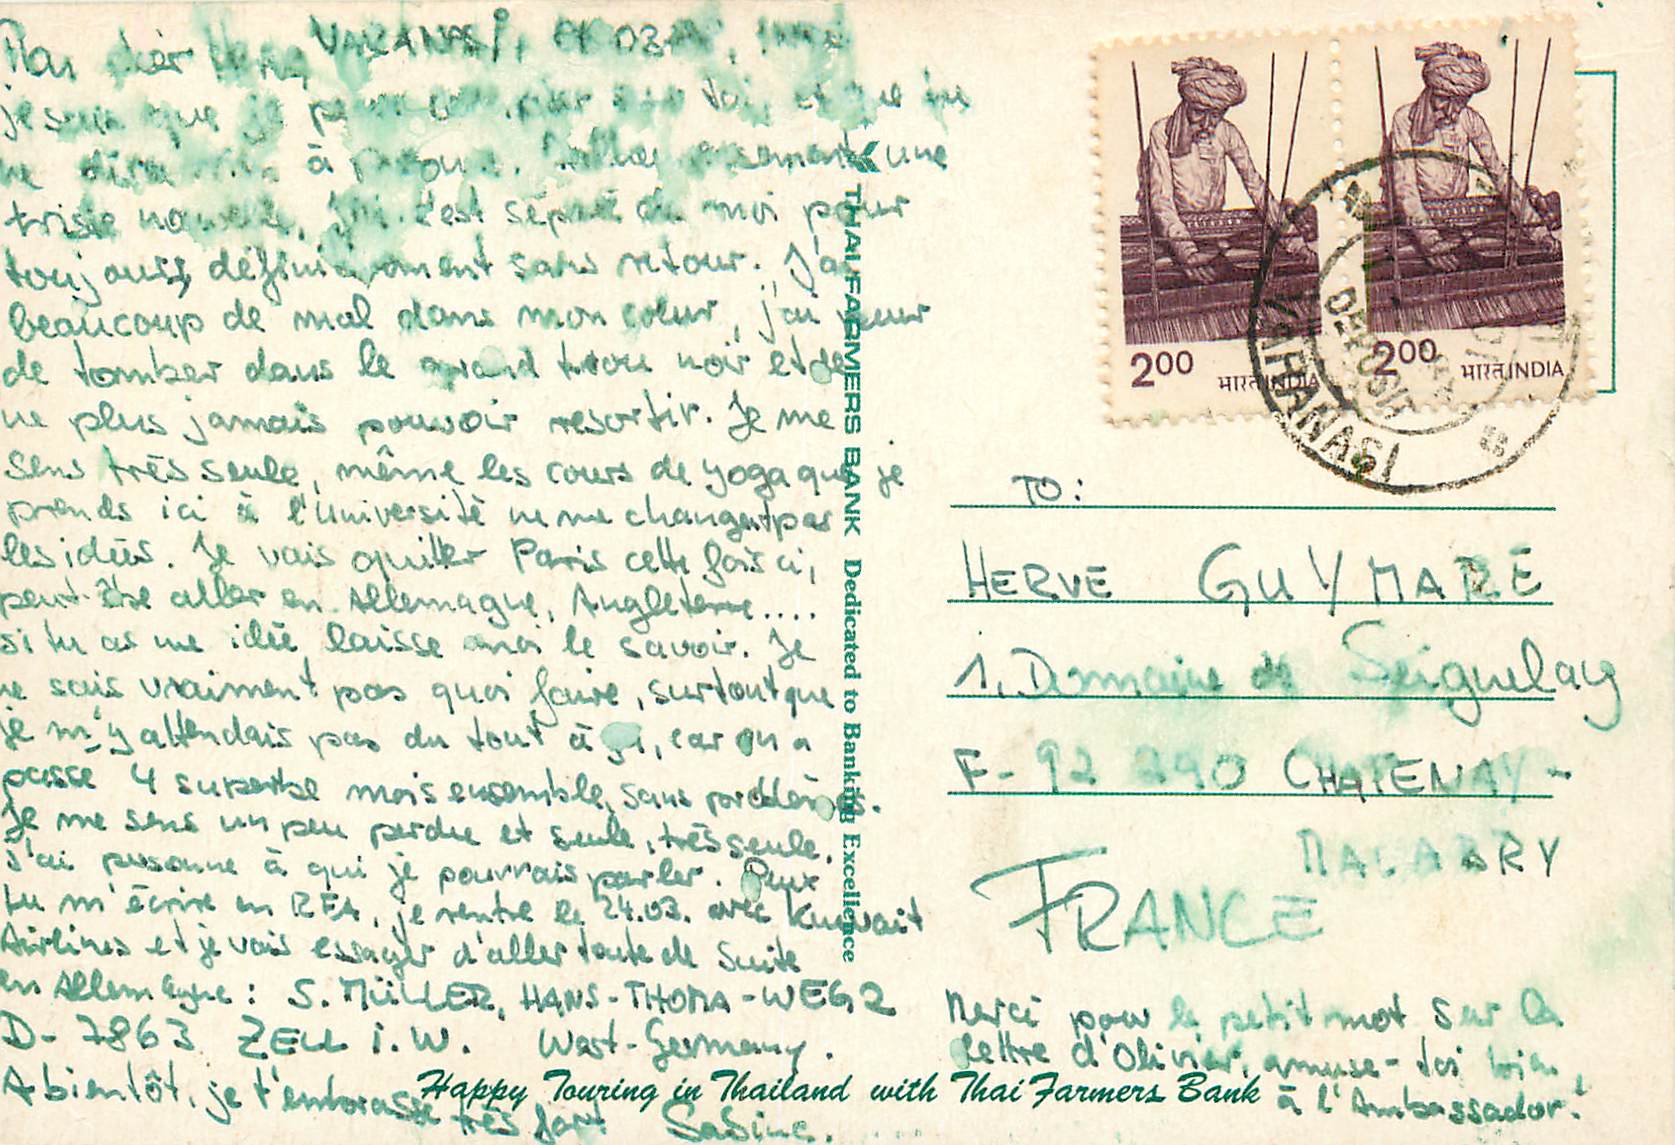 Mon cher Hervé VARANASI,
je sais que je peux sur toi, et que tu
ne diras rien à personne. une
triste nouvelle, s'est séparé de moi pour
toujours, définitivement sans retour. J'ai
beaucoup de mal dans mon coeur, j'ai peur
de tomber dans le grand trou noir et de
ne plus jamais pouvoir resortir. Je me
sens très seule, même les cours de yoga que je
prends ici à l'université ne me changent pas
les idées. Je vais quitter Paris cette fois ci,
peut-être aller en Allemagne, Angleterre....
si tu as une idée laisse moi le savoir. Je
ne sais vraiment pas quoi faire, surtout que
je m'y attendais pas du tout à ça, car on a
passé 4 superbe mois ensemble, sans problèmes.
Je me sens un peu perdue et seule, très seule.
J'ai personne à qui je pourrais parler. Peux
tu m'écrire en RFA, je rentre le 24.03. avec Kuwait
Airlines et je vais essayer d'aller toute de suite
en Allemagne: S. MÜLLER, HANS-THOMA-WEG 2
D-7863 ZELL i.W. West-Germany.
A bientôt, je t'embrasse
très fort Sabine.
THAI FARMERS BANK Dedicated to Banking Excellence
Happy Touring in Thailand with Thai Farmers Bank
200 भारत INDIA
200 भारत INDIA
VARANASI
DEPOSIT
TO:
HERVE GUYMARE
1, Domaine de Seignelay
F-92 290 CHATENAY-
MALABRY
FRANCE
Merci pour le petit mot sur la
lettre d'Olivier, amuse-toi bien
à l'Ambassador!